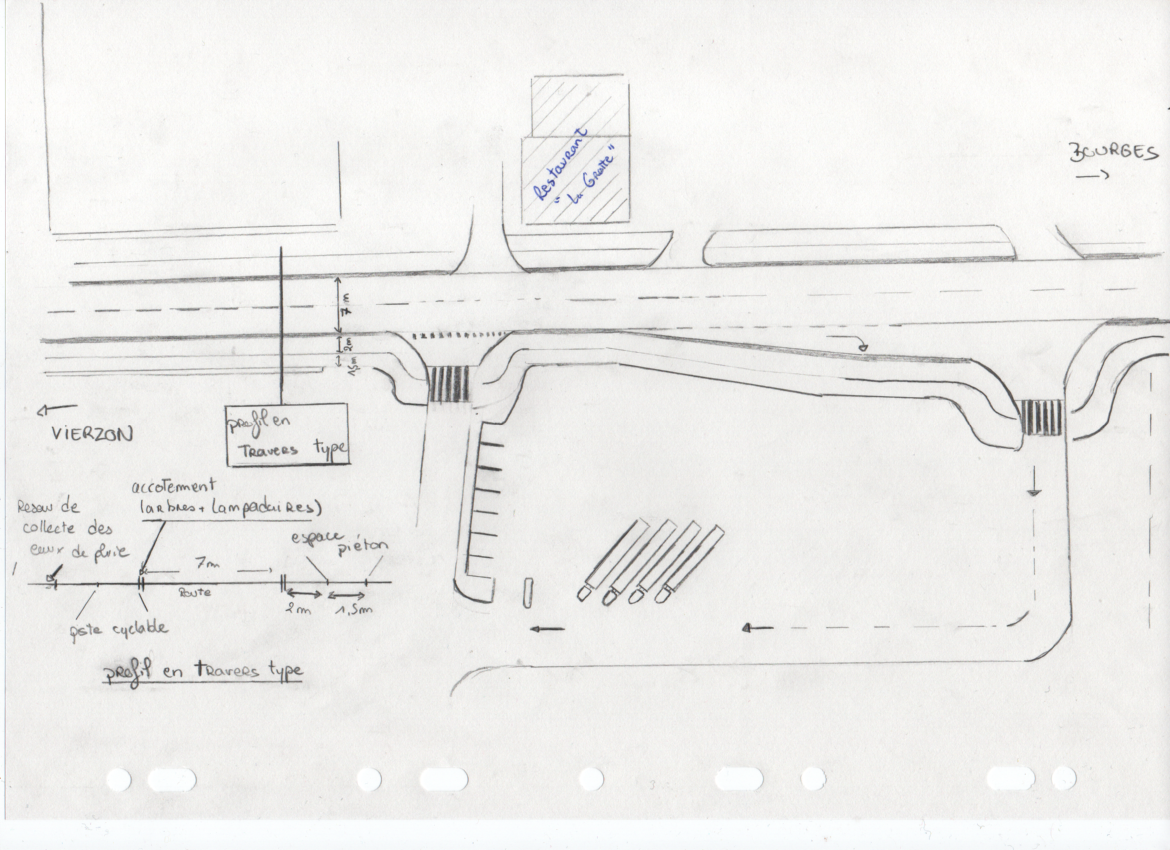 BOURGES
Restaurant
"La Grotte"
7 m
2m
1,5m
VIERZON
profil en
Travers type
accotement
(arbres + lampadaires)
Reseau de
collecte des
eaux de pluie
espace
piéton
7m
Route
2m
1,5m
piste cyclable
profil en Travers type